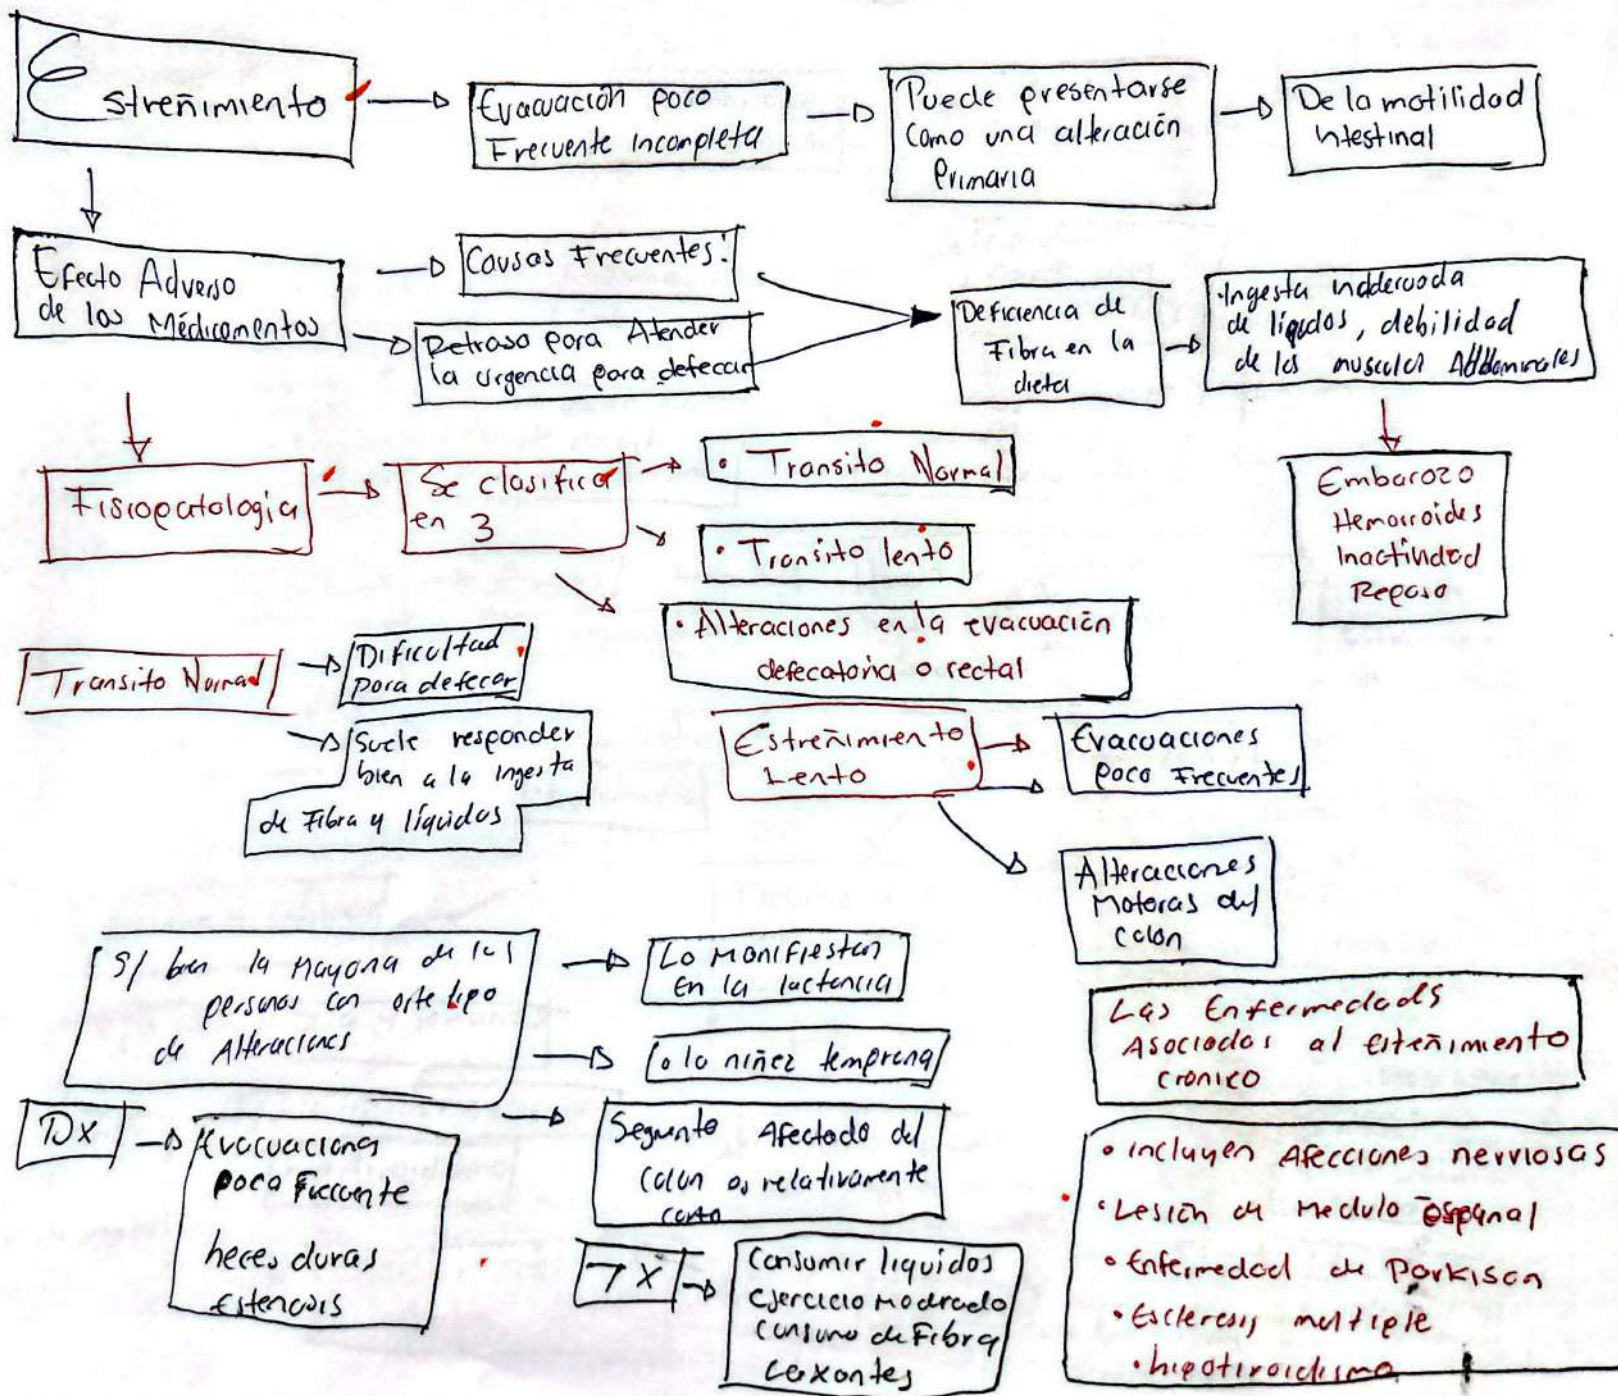 Estreñimiento
Evacuación poco
Frecuente incompleta
Puede presentarse
Como una alteración
Primaria
De la motilidad
intestinal
Efecto Adverso
de los Médicamentos
Causas Frecuentes:
Retraso para Atender
la urgencia para defecar
Deficiencia de
Fibra en la
dieta
• Ingesta inadecuada
de líquidos, debilidad
de los musculos Abdominales
Embarazo
Hemorroides
Inactividad
Reposo
Fisiopatologia
Se clasifica
en 3
• Transito Normal
• Transito lento
• Alteraciones en la evacuación
defecatoria o rectal
Transito Normal
Dificultad
para defecar
Suele responder
bien a la ingesta
de Fibra y líquidos
Estreñimiento
Lento
Evacuaciones
poco Frecuentes
Alteraciones
Motoras del
colon
Si bien la Mayoria de las
personas con este tipo
de Alteraciones
Lo Manifiestan
En la lactancia
o la niñez temprana
Segmento Afectado del
colon es relativamente
corto
Las Enfermedads
Asociadas al estreñimiento
cronico
• incluyen Afecciones nerviosas
• Lesión de Medula Espinal
• Enfermedad de Parkison
• Esclerosis multiple
• hipotiroidismo
Dx
Evacuaciones
poco Frecuente
heces duras
Estenosis
Tx
Consumir liquidos
ejercicio Modrado
consumo de Fibra
Laxantes